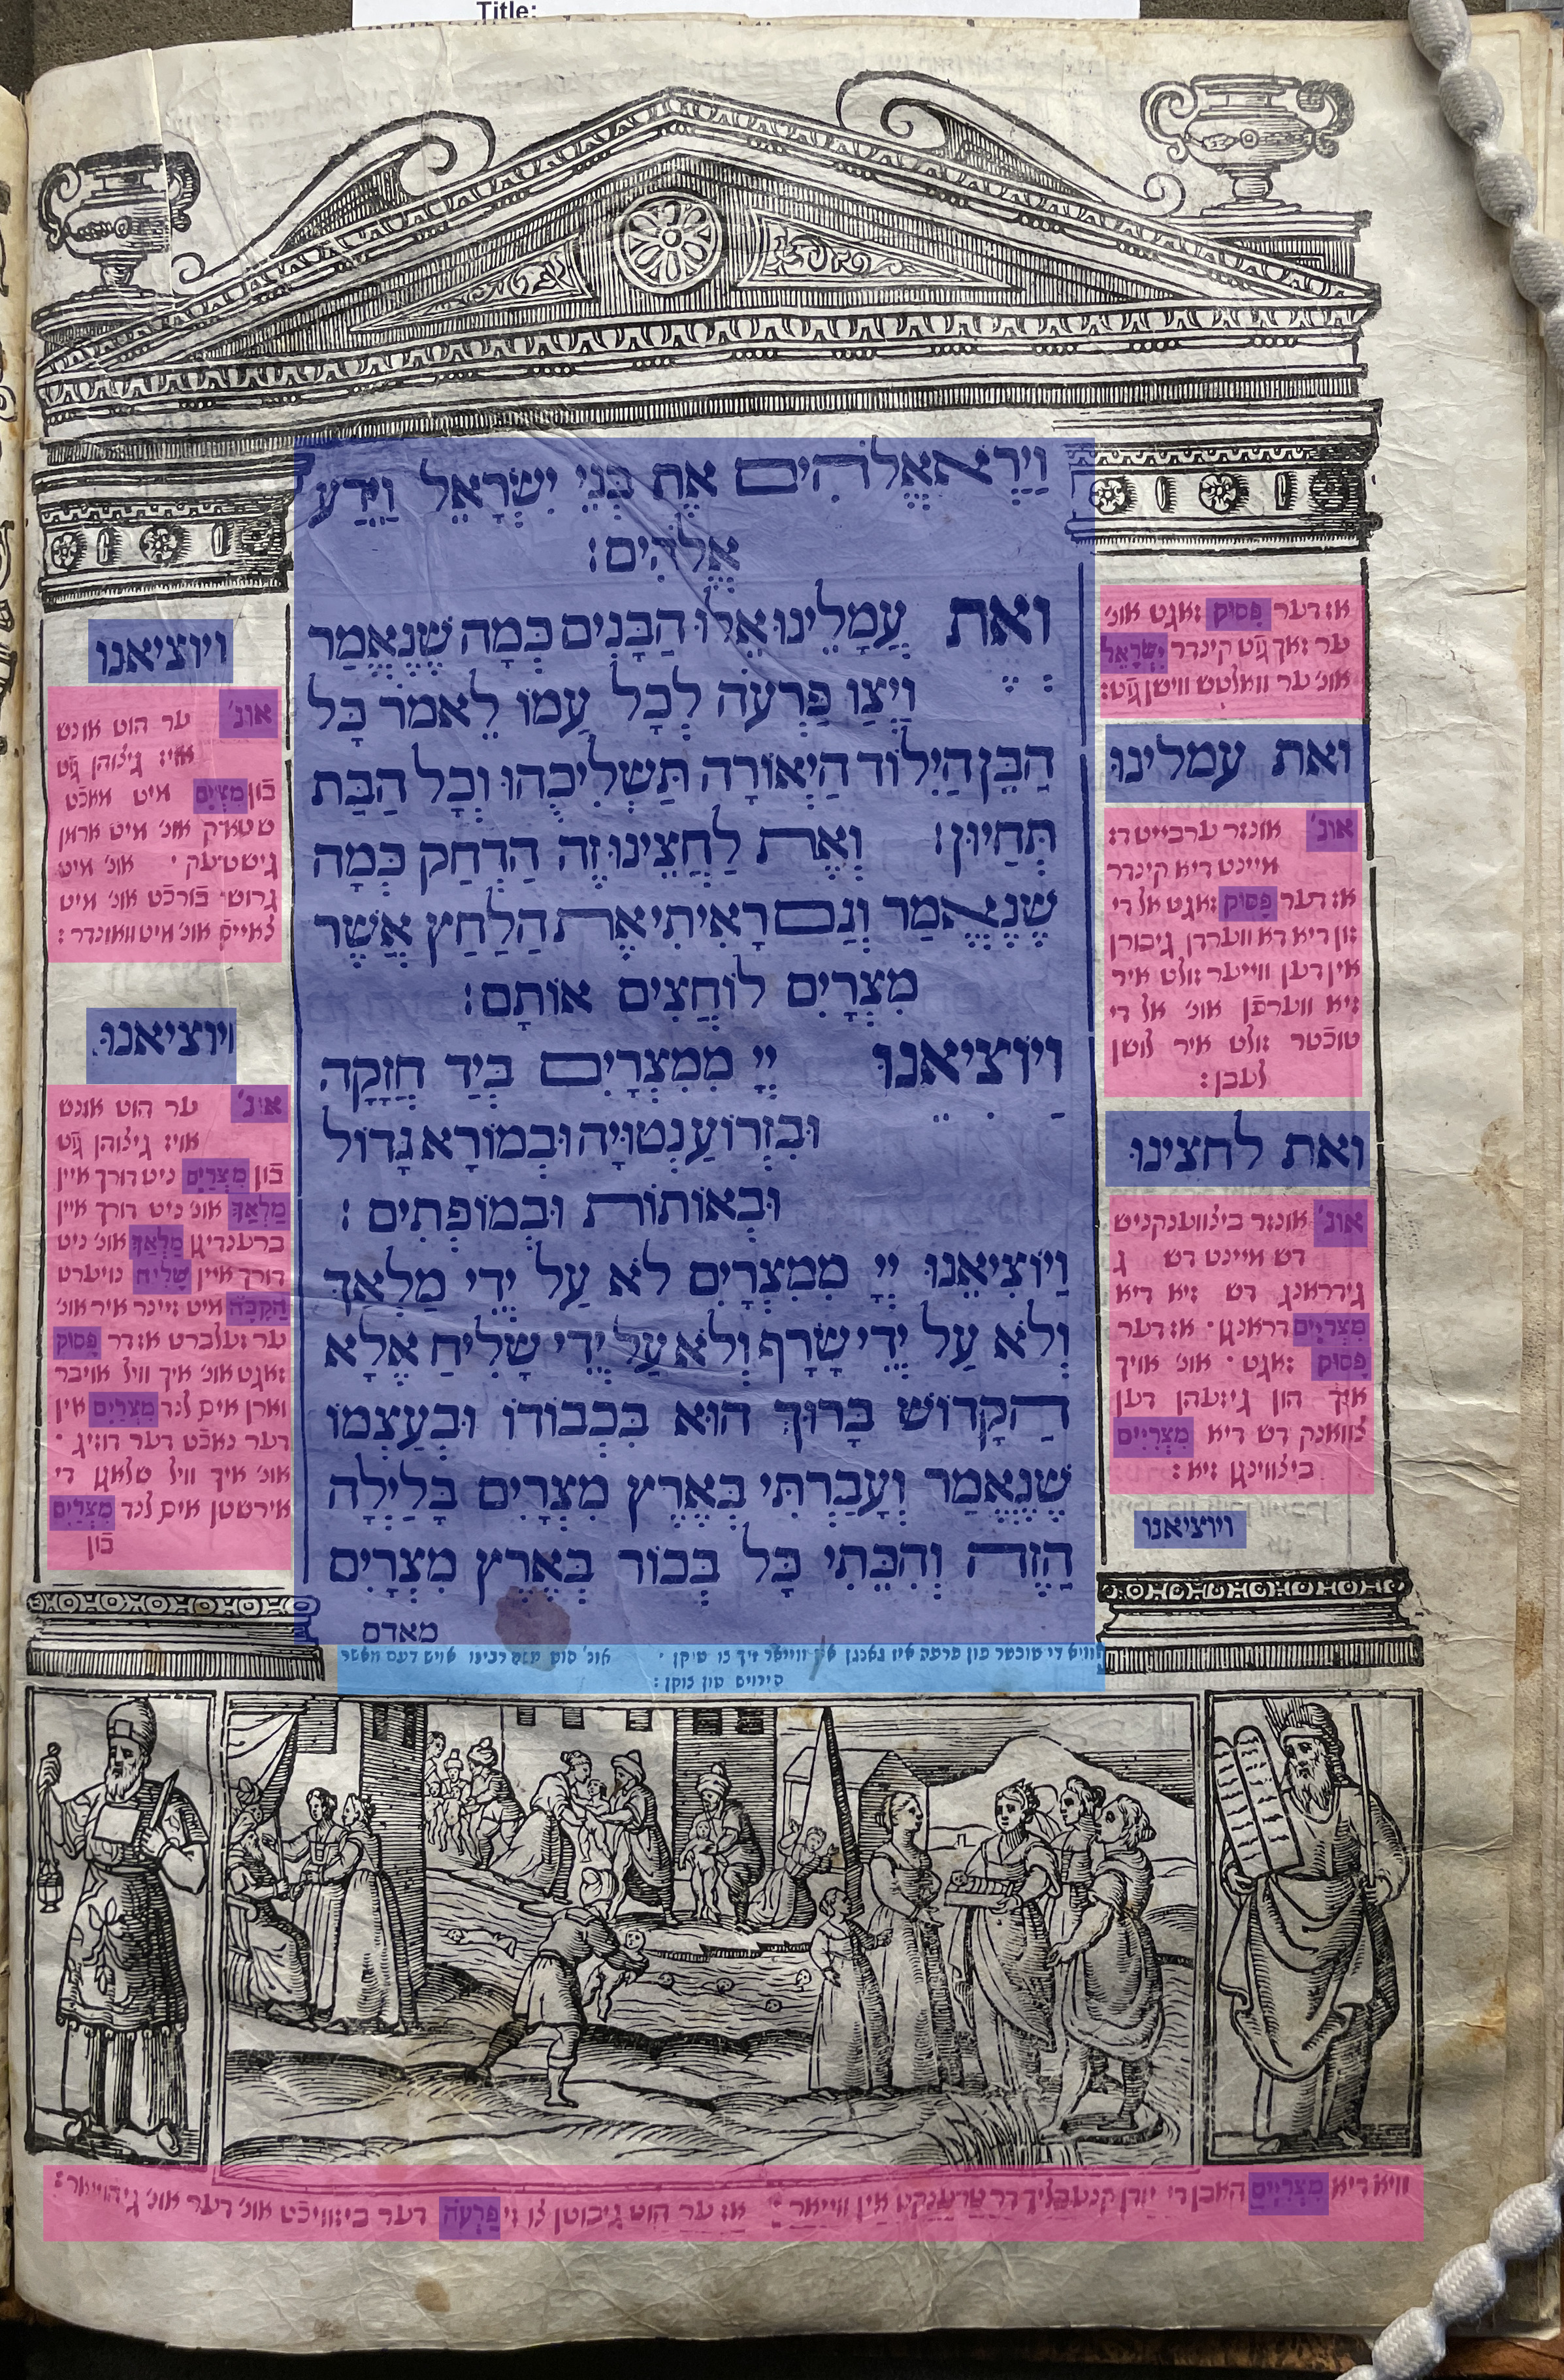 Title:
וַיַרְא אֱלֹהִים אֶת בְּנֵי יִשְׂרָאֵל וַיֵדַע
אֱלֹהִים:
וְאֶת עֲמָלֵינוּ אֵלוּ הַבָּנִים כְּמָה שֶׁנֶאֱמַר
וַיְצַו פַּרְעֹה לְכָל עַמוֹ לֵאמֹר כָּל
הַבֵּן הַיִלוֹד הַיְאוֹרָה תַּשְׁלִיכֻהוּ וְכָל הַבַּת
תְּחַיוּן: וְאֶת לַחֲצֵינוּ זֶה הַדְחַק כְּמָה
שֶׁנֶאֱמַר וְגַם רָאִיתִי אֶת הַלַחַץ אֲשֶׁר
מִצְרַיִם לוֹחֲצִים אוֹתָם:
וַיוֹצִיאֵנוּ יְיָ מִמִצְרַיִם בְּיַד חֲזָקָה
וּבִזְרוֹעַ נְטוּיָה וּבְמוֹרָא גָדוֹל
וּבְאוֹתוֹת וּבְמוֹפְתִים:
וַיוֹצִיאֵנוּ יְיָ מִמִצְרַיִם לֹא עַל יְדֵי מַלְאָךְ
וְלֹא עַל יְדֵי שָׂרָף וְלֹא עַל יְדֵי שָׁלִיחַ אֶלָא
הַקָדוֹשׁ בָּרוּךְ הוּא בִּכְבוֹדוֹ וּבְעַצְמוֹ
שֶׁנֶאֱמַר וְעָבַרְתִּי בְּאֶרֶץ מִצְרַיִם בַּלַיְלָה
הַזֶה וְהִכֵּתִי כָּל בְּכוֹר בְּאֶרֶץ מִצְרָיִם
מאדם
אז דער פסוק זאגט אונ'
ער זאך גֿט קינדר יִשְׂרָאֵל
אונ' ער וואלטש ווישן גֿט:
ואת עמלינו
אונ' אונזר ערבייט דז
מיינט דיא קינדר
אז דער פָּסוּק זאגט אל די
זון דיא דא ווערדן גיבורן
אין דען ווייער זולט איר
זיא ווערפֿן אונ' אל די
טוכֿטר זולט איר לושן
לעבן:
ואת לחצינו
אונ' אונזר ביצווענקניש
דש מיינט דש ג
גידראנג דש זיא דיא
מִצְרַיִים דראנגן· אז דער
פָּסוּק זאגט· אונ' אויך
איך הון גיזעהן דען
צוואנק דש דיא מִצְרַיִים
ביצווינגן זיא:
ויוציאנו
ויוציאנו
אונ' ער הוט אונש
אויז גיצוהן גֿט
בֿון מִצְרַיִם מיט מאכֿט
שטארק אונ' מיט ארמן
גישטרעק· אונ' מיט
גרושי בֿורכֿט אונ' מיט
צאייכֿן אונ' מיט וואונדר:
ויוציאנו
אונ' ער הוט אונש
אויז גיצוהן גֿט
בֿון מִצְרַיִם ניט דורך איין
מַלְאָךְ אונ' ניט דורך איין
ברענדיגן מַלְאָךְ אונ' ניט
דורך איין שָׁלִיחַ נוייערט
הַקָבָּה מיט זיינר איר אונ'
ער זעלברט אז דר פסוק
זאגט אונ' איך וויל אויבר
וארן אים לנד מִצְרַיִם אין
דער נאכֿט דער דוזיג·
אונ' איך וויל שלאגן די
אירשטן אים לנד מִצְרַיִם
בֿון
וויא דיא מִצְרַיִים האבן די יודן קנעבליך דר טרענקט אין ווייאר:
אז ער הוט גיבוטן צו זי פַּרְעֹה דער ביזוויכֿט אונ' דער אונ' גיהוייאר: